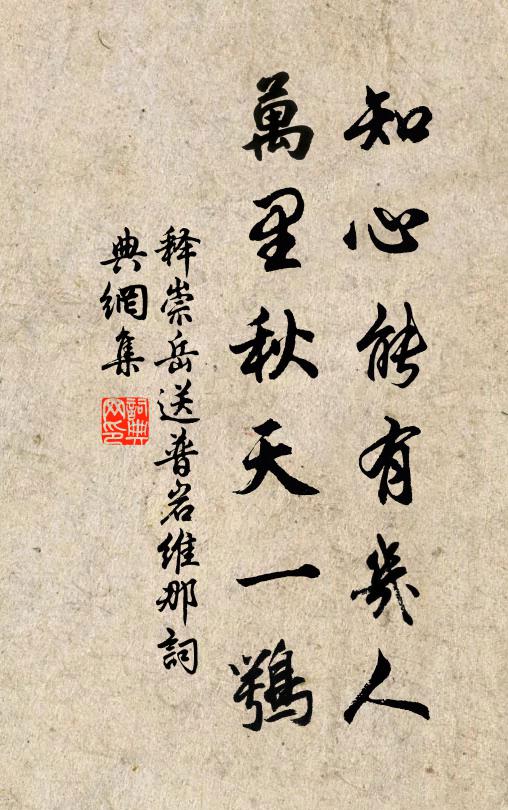 知心能有幾人
萬里秋天一鶚
释崇岳送普岩維那詞
典網集
詞典網印